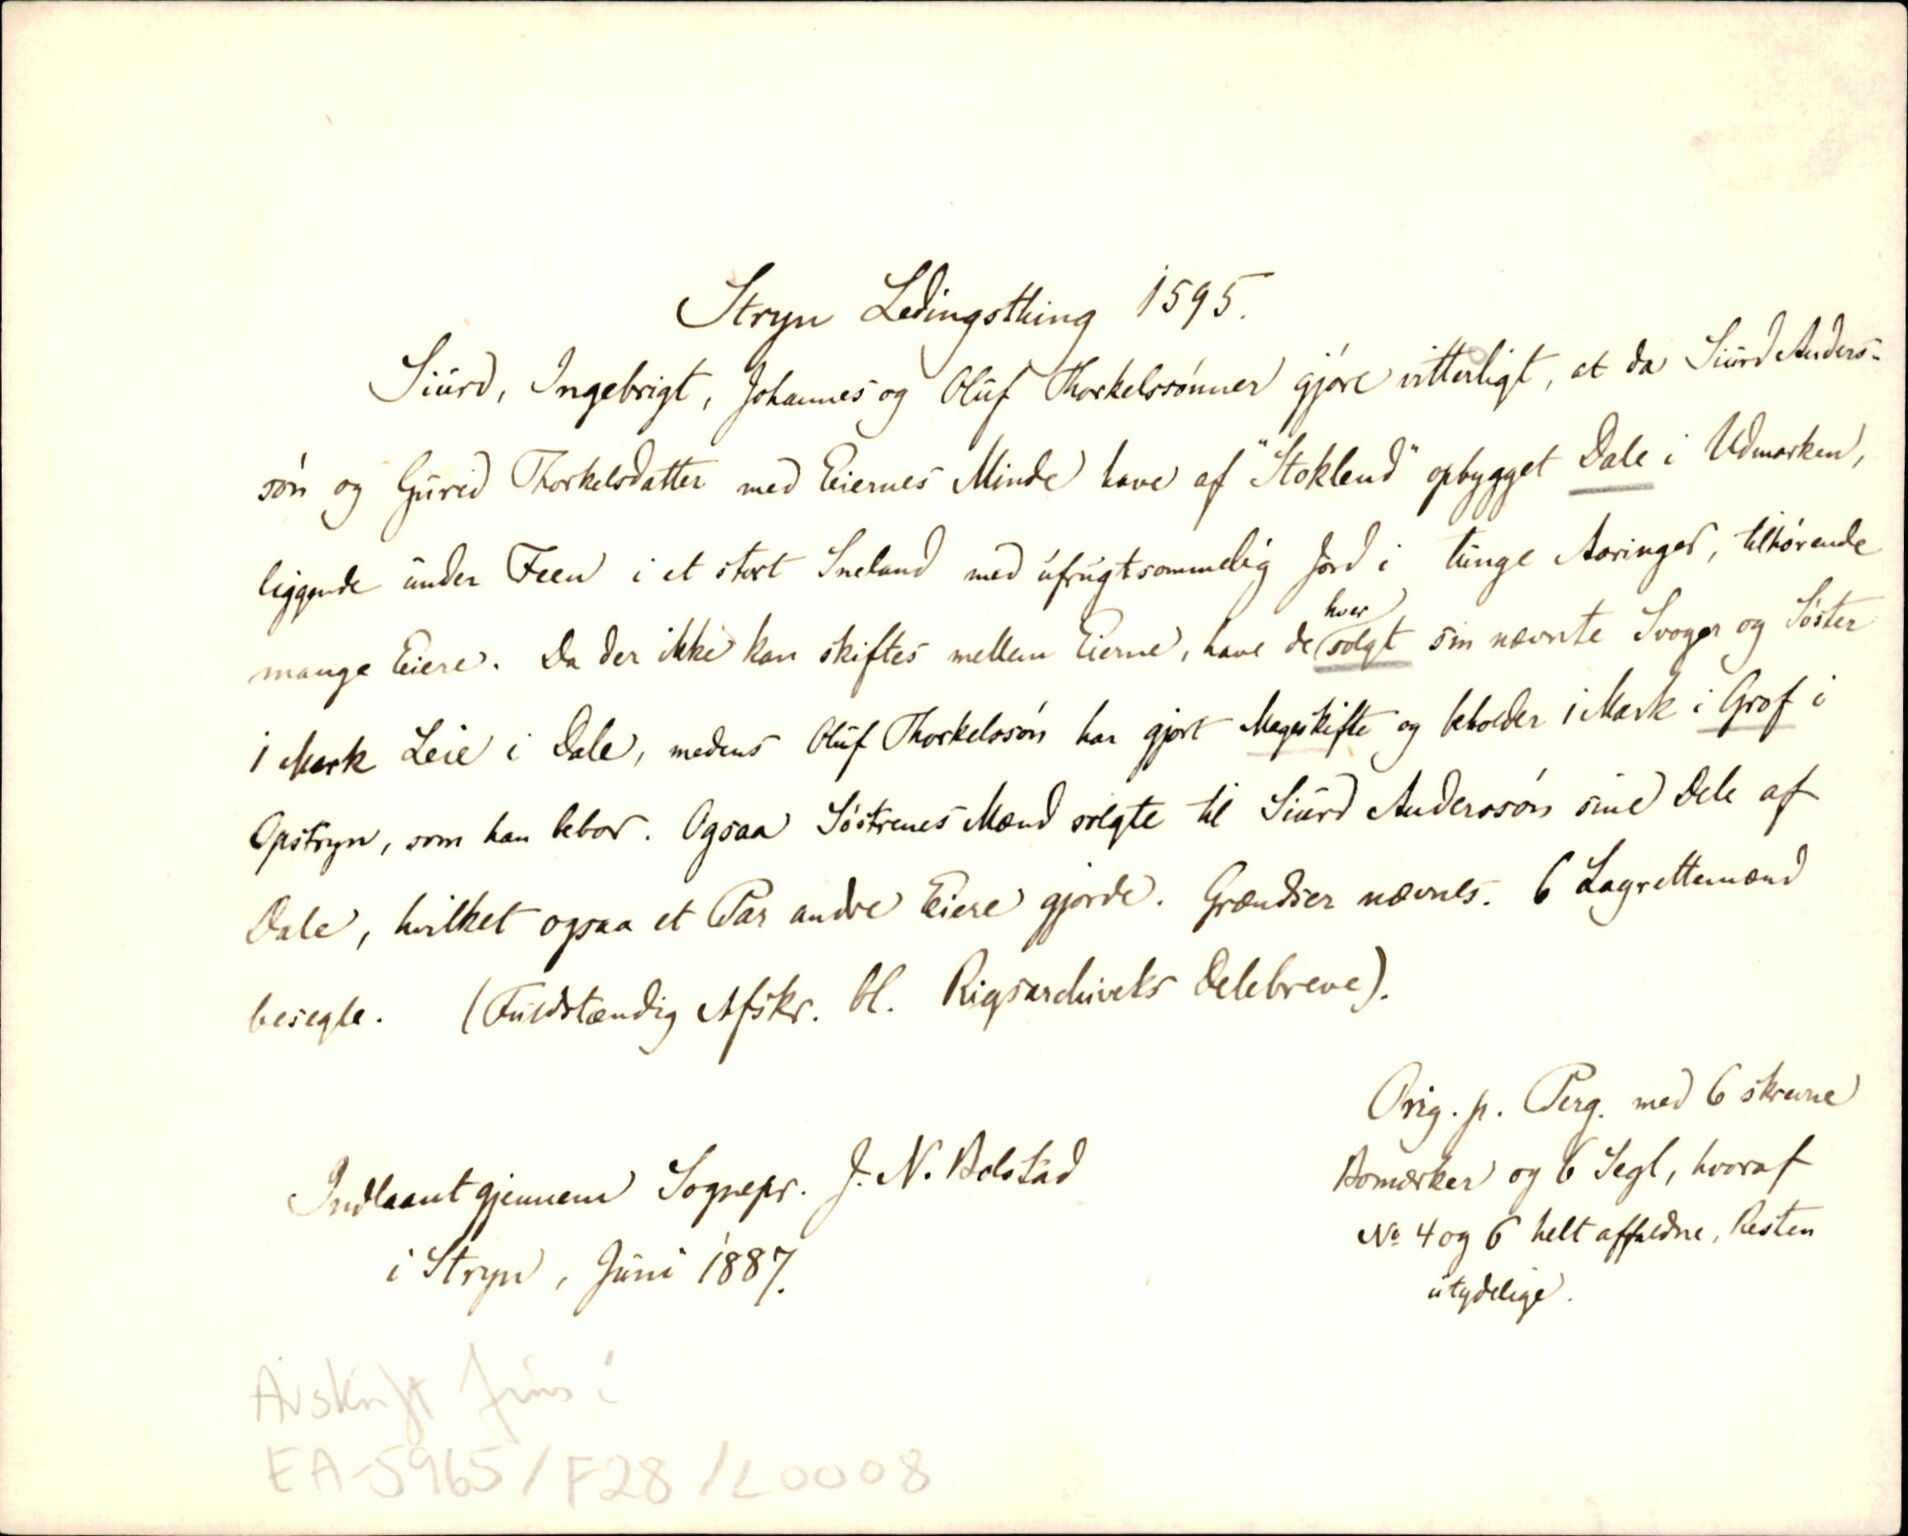 Stryn Ledingsthing 1595.
Siurd, Ingebrigt, Johannes og Oluf Thorkelssønner gjøre vitterligt, at da Siurd Anders-
søn og Gurid Thorkelsdatter med Eiernes Minde have af "Stoklend" opbygget Dale i Udmarken,
liggende under Feen i et stort Sneland med ufrugtsommelig Jord i tunge Aaringer, tilhørende
mange Eiere. Da der ikke kan skiftes mellem Eierne, have de hver solgt sin nævnte Svoger og Søster
1 Mark Leie i Dale, medens Oluf Thorkelssøn har gjort Mageskifte og beholder 1 Mark i Grof i
Opstryn, som han bebor. Ogsaa Søstrenes Mænd solgte til Siurd Anderssøn sine Dele af
Dale, hvilket ogsaa et Par andre Eiere gjorde. Grændser nævnes. 6 Lagrettemænd
besegle. (Fuldstændig Afskr. bl. Rigsarchivets Delebreve).
Orig. p. Perg. med 6 skrevne
Bomærker og 6 Segl, hvoraf
No 4 og 6 helt affaldne, Resten
utydelige.
Indlaant gjennem Sognepr. J. N. Bolstad
i Stryn, Juni 1887.
Avskrift finns i
EA-5965/F28/L0008